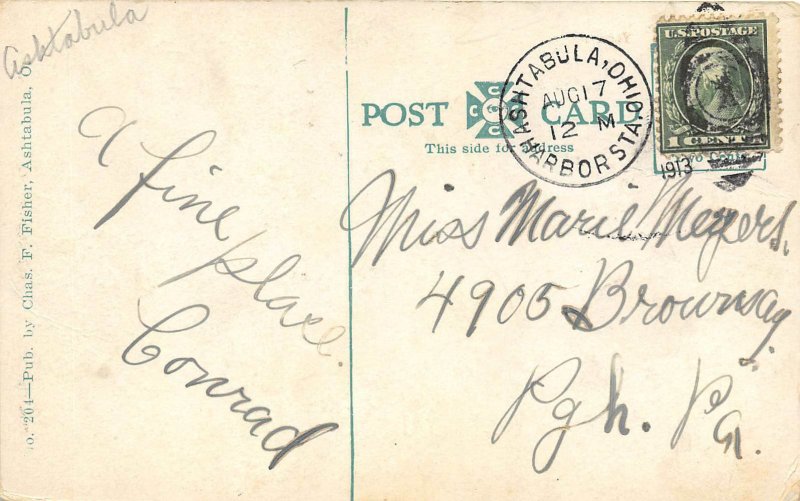 Ashtabula
No. 204—Pub. by Chas. F. Fisher, Ashtabula, O.
A fine
place.
Conrad
POST CARD
This side for address
ASHTABULA, OHIO.
AUG 17
12 M
HARBOR STA.
1913
U.S. POSTAGE
1 CENT 1
Miss Marie Meyers.
4905 Brownway
Pgh. Pa.